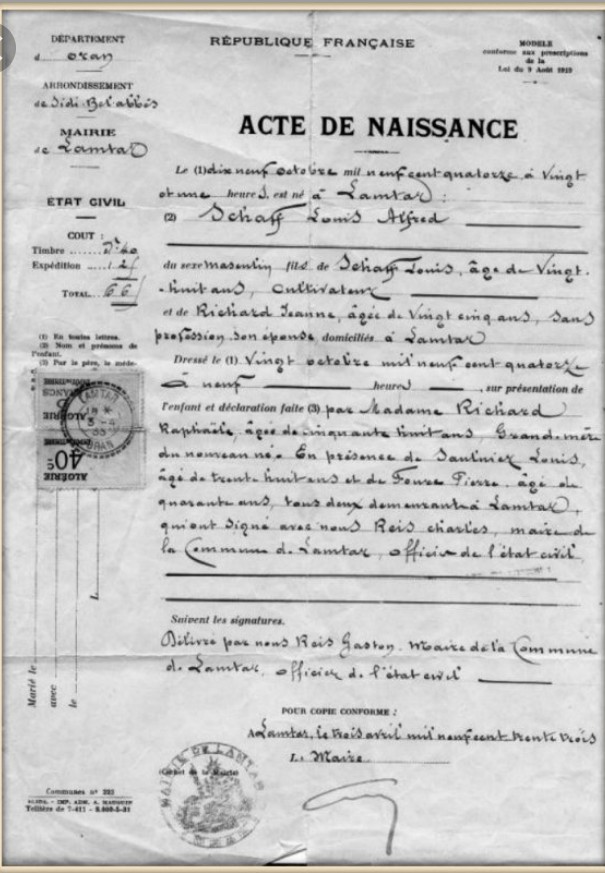 DÉPARTEMENT
d oran
ARRONDISSEMENT
de Sidi Bel abbès
MAIRIE
de Lamtar
ÉTAT CIVIL
COUT :
Timbre
Expédition
TOTAL
(1) En toutes lettres.
(2) Nom et prénoms de
l'enfant.
(3) Par le père, le méde-
RÉPUBLIQUE FRANÇAISE
MODELE
conforme aux prescriptions
de la
Loi du 9 Août 1919
ACTE DE NAISSANCE
Le (1) dix neuf octobre mil neuf cent quatorze à vingt
et une heures est né à Lamtar :
(2) Schaff Louis Alfred
du sexe masculin fils de Schaff Louis, âgé de vingt-
huit ans, cultivateur
et de Richard Jeanne, âgée de vingt cinq ans, sans
profession son épouse domiciliés à Lamtar
Dressé le (1) vingt octobre mil neuf cent quatorze
à neuf heures, sur présentation de
l'enfant et déclaration faite (3) par Madame Richard
Raphaële, âgée de cinquante huit ans, Grand-mère
du nouveau né. En présence de Saulnier Louis,
âgé de trente huit ans et de Pierre, âgé de
quarante ans, tous deux demeurant à Lamtar,
qui ont signé avec nous Reis charles, maire de
la Commune de Lamtar, officier de l'état civil
Suivent les signatures.
Délivré par nous Reis Gaston. Maire de la Commune
de Lamtar, officier de l'état civil
POUR COPIE CONFORME :
A Lamtar, le trois avril mil neuf cent trente trois
Le Maire
(Cachet de la Mairie)
MAIRIE DE LAMTAR
ALGÉRIE
40c
LAMTAR
ORAN
Marié le
avec
le
Communes n° 223
ALGER. - IMP. ADM. A. MAUGUIN
Tellière de 7-411 - 8.060-5-31